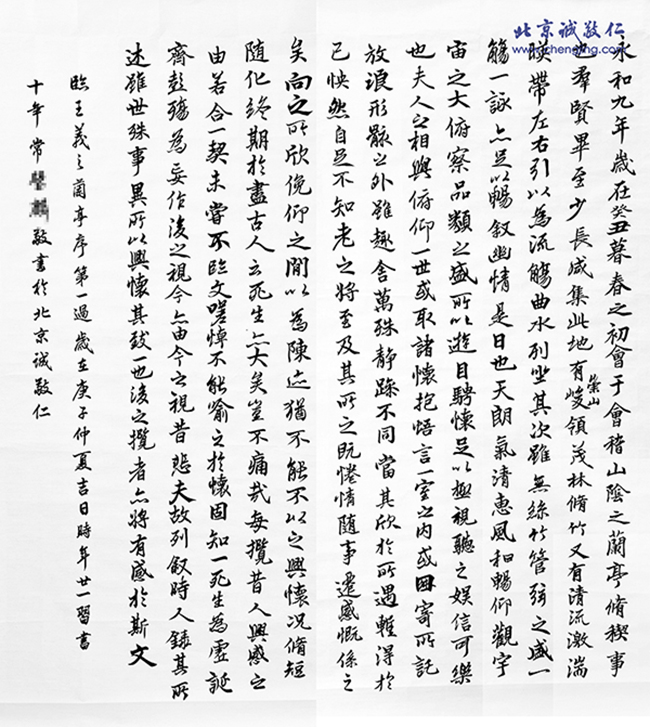 北京诚敬仁
www.chengjing.cn
永和九年歲在癸丑暮春之初會于會稽山陰之蘭亭脩稧事
也羣賢畢至少長咸集此地有崇山峻領茂林脩竹又有清流激湍
暎帶左右引以為流觴曲水列坐其次雖無絲竹管弦之盛一
觴一詠亦足以暢叙幽情是日也天朗氣清惠風和暢仰觀宇
宙之大俯察品類之盛所以遊目騁懷足以極視聽之娱信可樂
也夫人之相與俯仰一世或取諸懷抱悟言一室之内或因寄所託
放浪形骸之外雖趣舍萬殊静躁不同當其欣於所遇暫得於
己快然自足不知老之將至及其所之既惓情随事遷感慨係之
矣向之所欣俛仰之閒以為陳迹猶不能不以之興懷况脩短
随化終期於盡古人云死生亦大矣豈不痛哉每攬昔人興感之
由若合一契未嘗不臨文嗟悼不能喻之於懷固知一死生為虛誕
齊彭殤為妄作後之視今亦由今之視昔悲夫故列叙時人錄其所
述雖世殊事異所以興懷其致一也後之攬者亦將有感於斯文
臨王羲之蘭亭序第一過歲在庚子仲夏吉日時年廿一習書
十年常敬書於北京誠敬仁